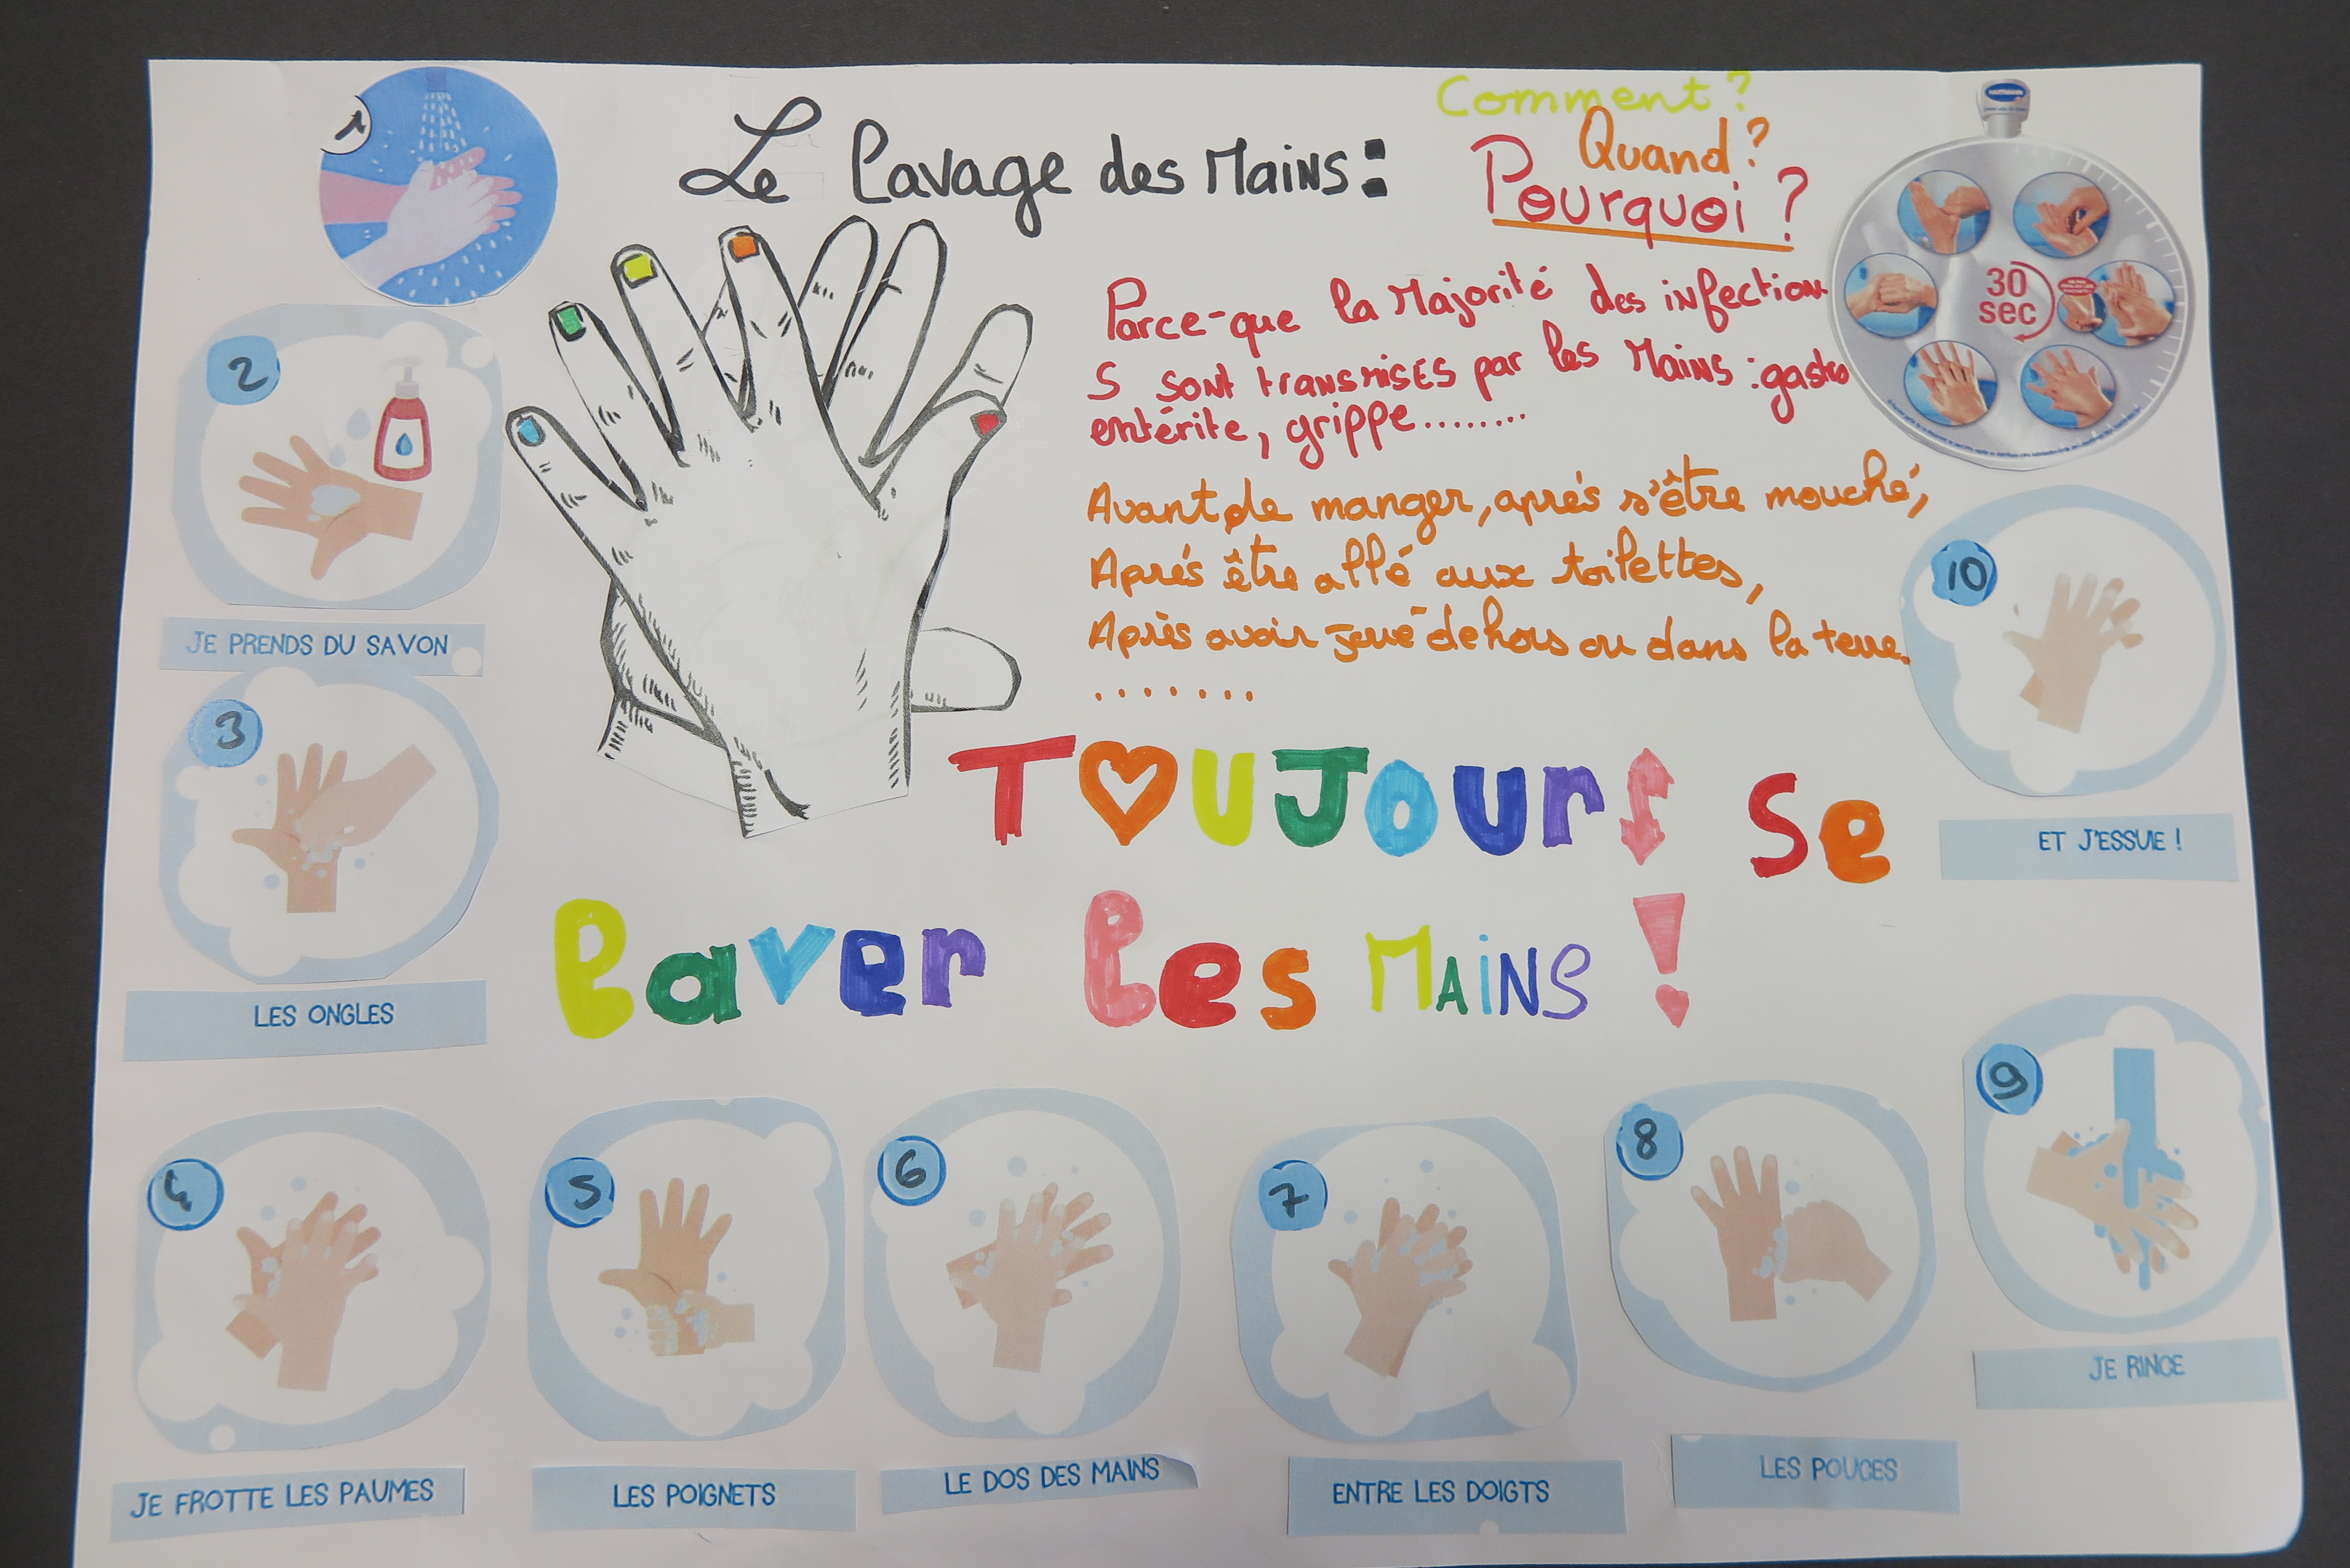 Comment ?
Le lavage des Mains :
Quand ?
Pourquoi ?
1
30
sec
Parce-que la Majorité des infection
s sont transmises par les Mains : gastro
entérite, grippe........
Avant de manger, aprés s'être mouché,
Aprés être allé aux toilettes,
Après avoir joué dehors ou dans la terre.
........
2
JE PRENDS DU SAVON
3
LES ONGLES
TOUJOURS se
laver les MAiNS !
4
JE FROTTE LES PAUMES
5
LES POIGNETS
6
LE DOS DES MAINS
7
ENTRE LES DOIGTS
8
LES POUCES
9
JE RINCE
10
ET J'ESSUIE !